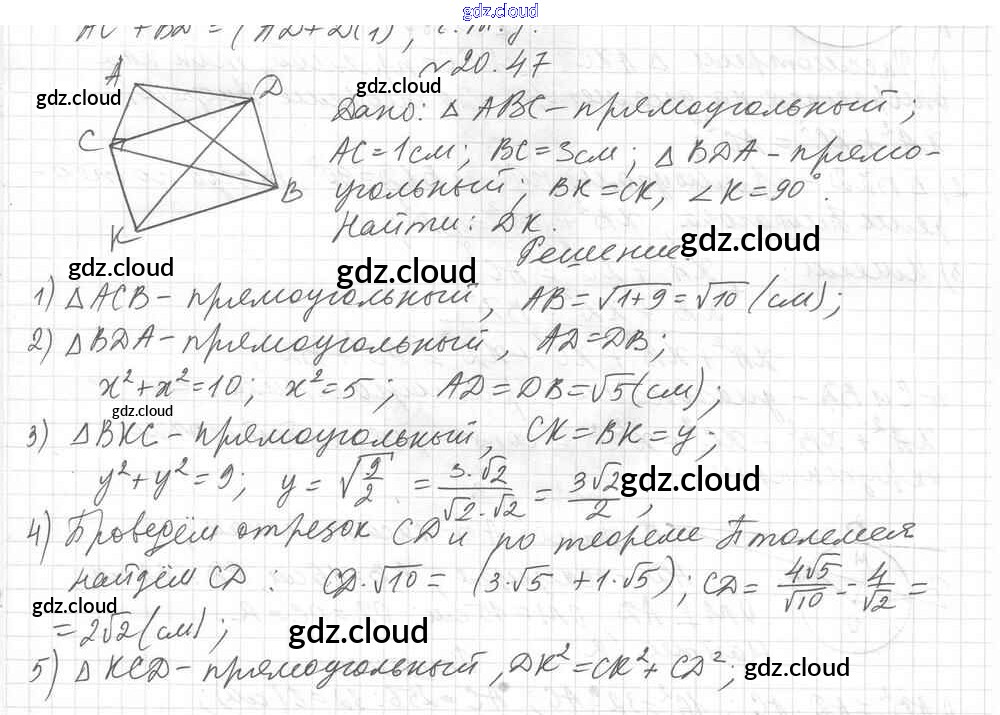 gdz.cloud
AC + BD = (AD + D(1), ч.т.д.
№20.47
A
D
C
B
K
gdz.cloud
gdz.cloud
Дано: △ ABC - прямоугольный;
AC = 1 см; BC = 3 см; △ BDA - прямо-
угольный; BK = CK, ∠K = 90°.
Найти: DK.
gdz.cloud
Решение:
gdz.cloud
gdz.cloud
1) △ACB - прямоугольный, AB = √1+9 = √10 (см);
2) △BDA - прямоугольный, AD = DB;
x² + x² = 10; x² = 5; AD = DB = √5 (см);
gdz.cloud
3) △BKC - прямоугольный, CK = BK = y;
y² + y² = 9; y = √9/2 = 3·√2/√2·√2 = 3√2/2;
gdz.cloud
4) Проведём отрезок CD и по теореме Птолемея
найдём CD: CD·√10 = (3·√5 + 1·√5); CD = 4√5/√10 - 4/√2 =
gdz.cloud
= 2√2 (см);
gdz.cloud
5) △KCD - прямоугольный, DK² = CK² + CD²;
gdz.cloud